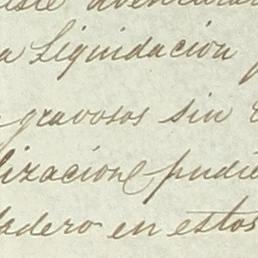 a Liquidacion
gravosos sin
lizacion pudie
dadero en estos